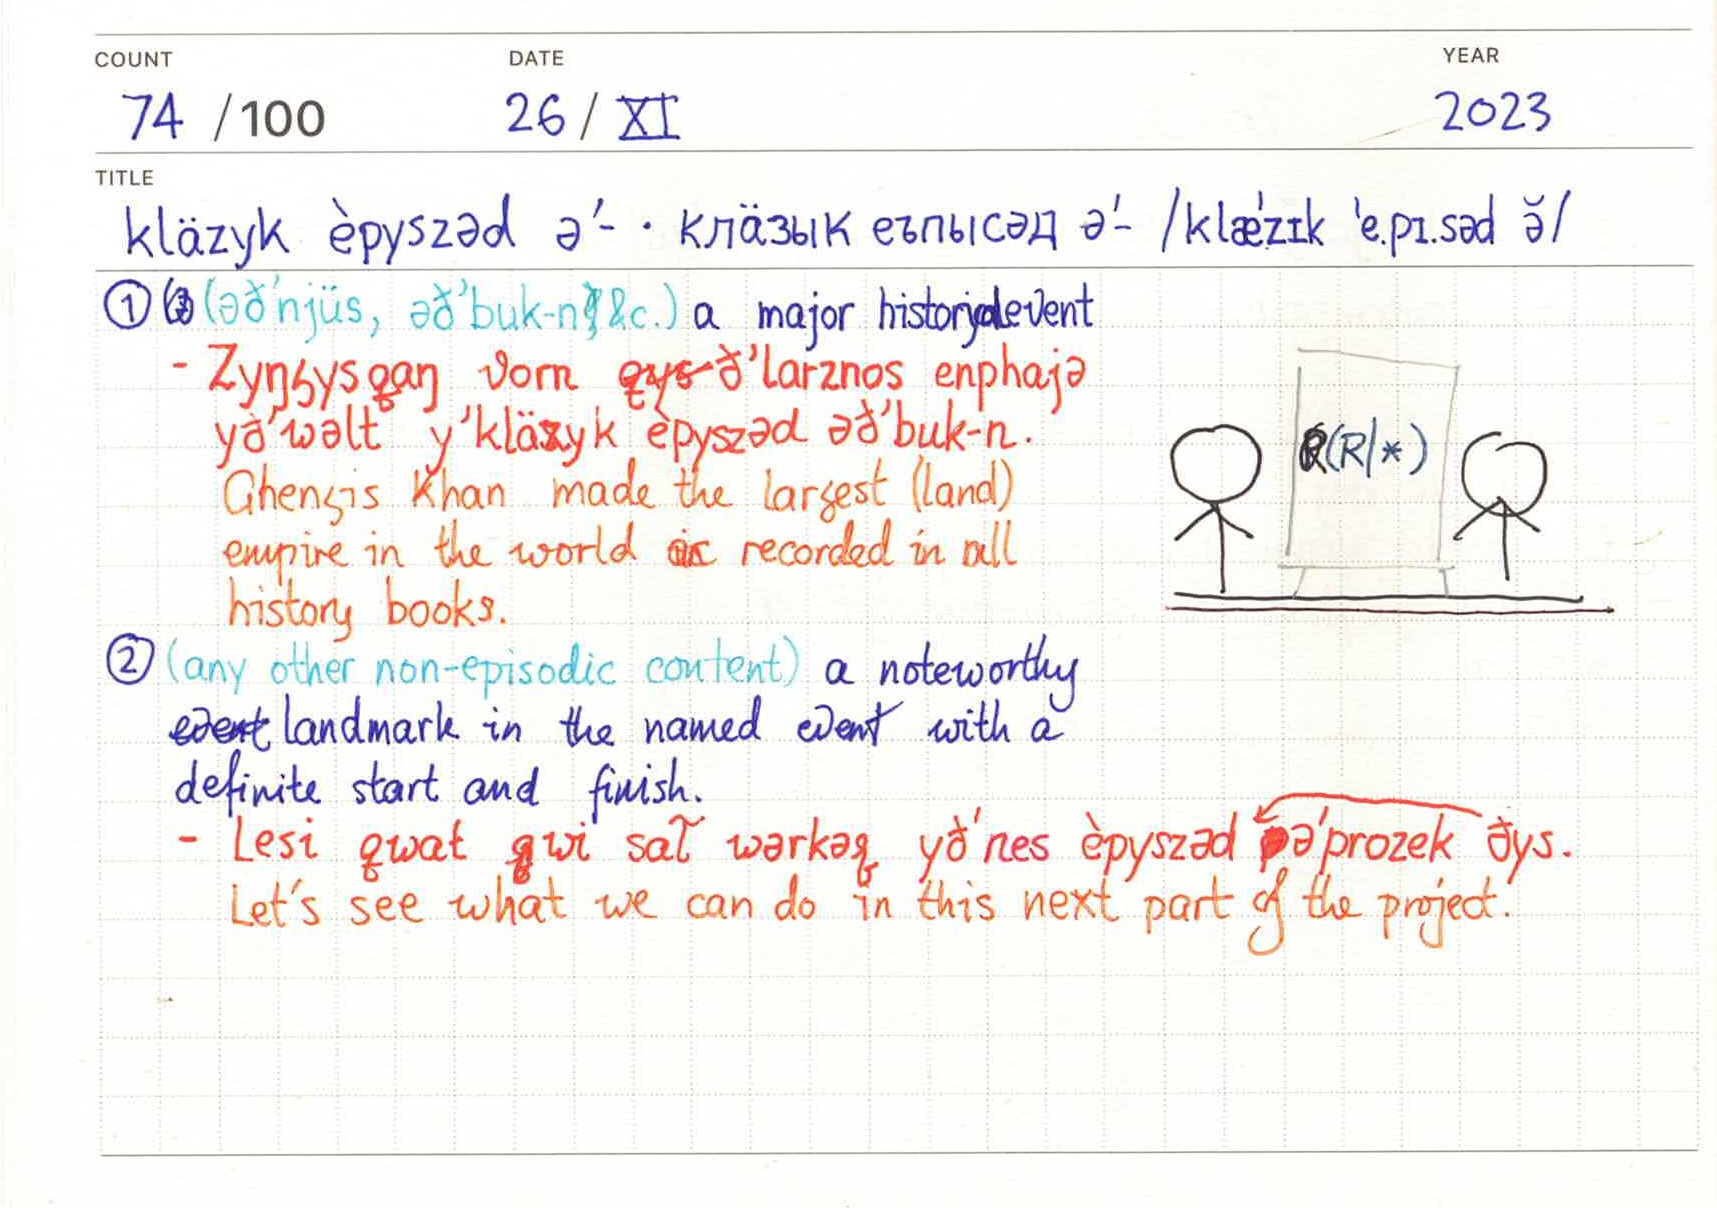 COUNT DATE YEAR
74 /100 26 / XI 2023
TITLE
kläzyk èpyszəd ə'- · кläзык еъпысәд ә'- /klæ'zɪk 'e.pɪ.səd ə̆/
① (əð'njüs, əð'buk-n &c.) a major historical event
- Zyŋȝysqaŋ vorn ð'larznos enphajə
yð'wəlt y'kläzyk èpyszəd əð'buk-n.
Ghengis Khan made the largest (land)
empire in the world as recorded in all
history books.
(R|*)
② (any other non-episodic content) a noteworthy
event landmark in the named event with a
definite start and finish.
- Lesi qwat qwi sat̃ wərkəq yð'nes èpyszəd ə'prozek ðys.
Let's see what we can do in this next part of the project.